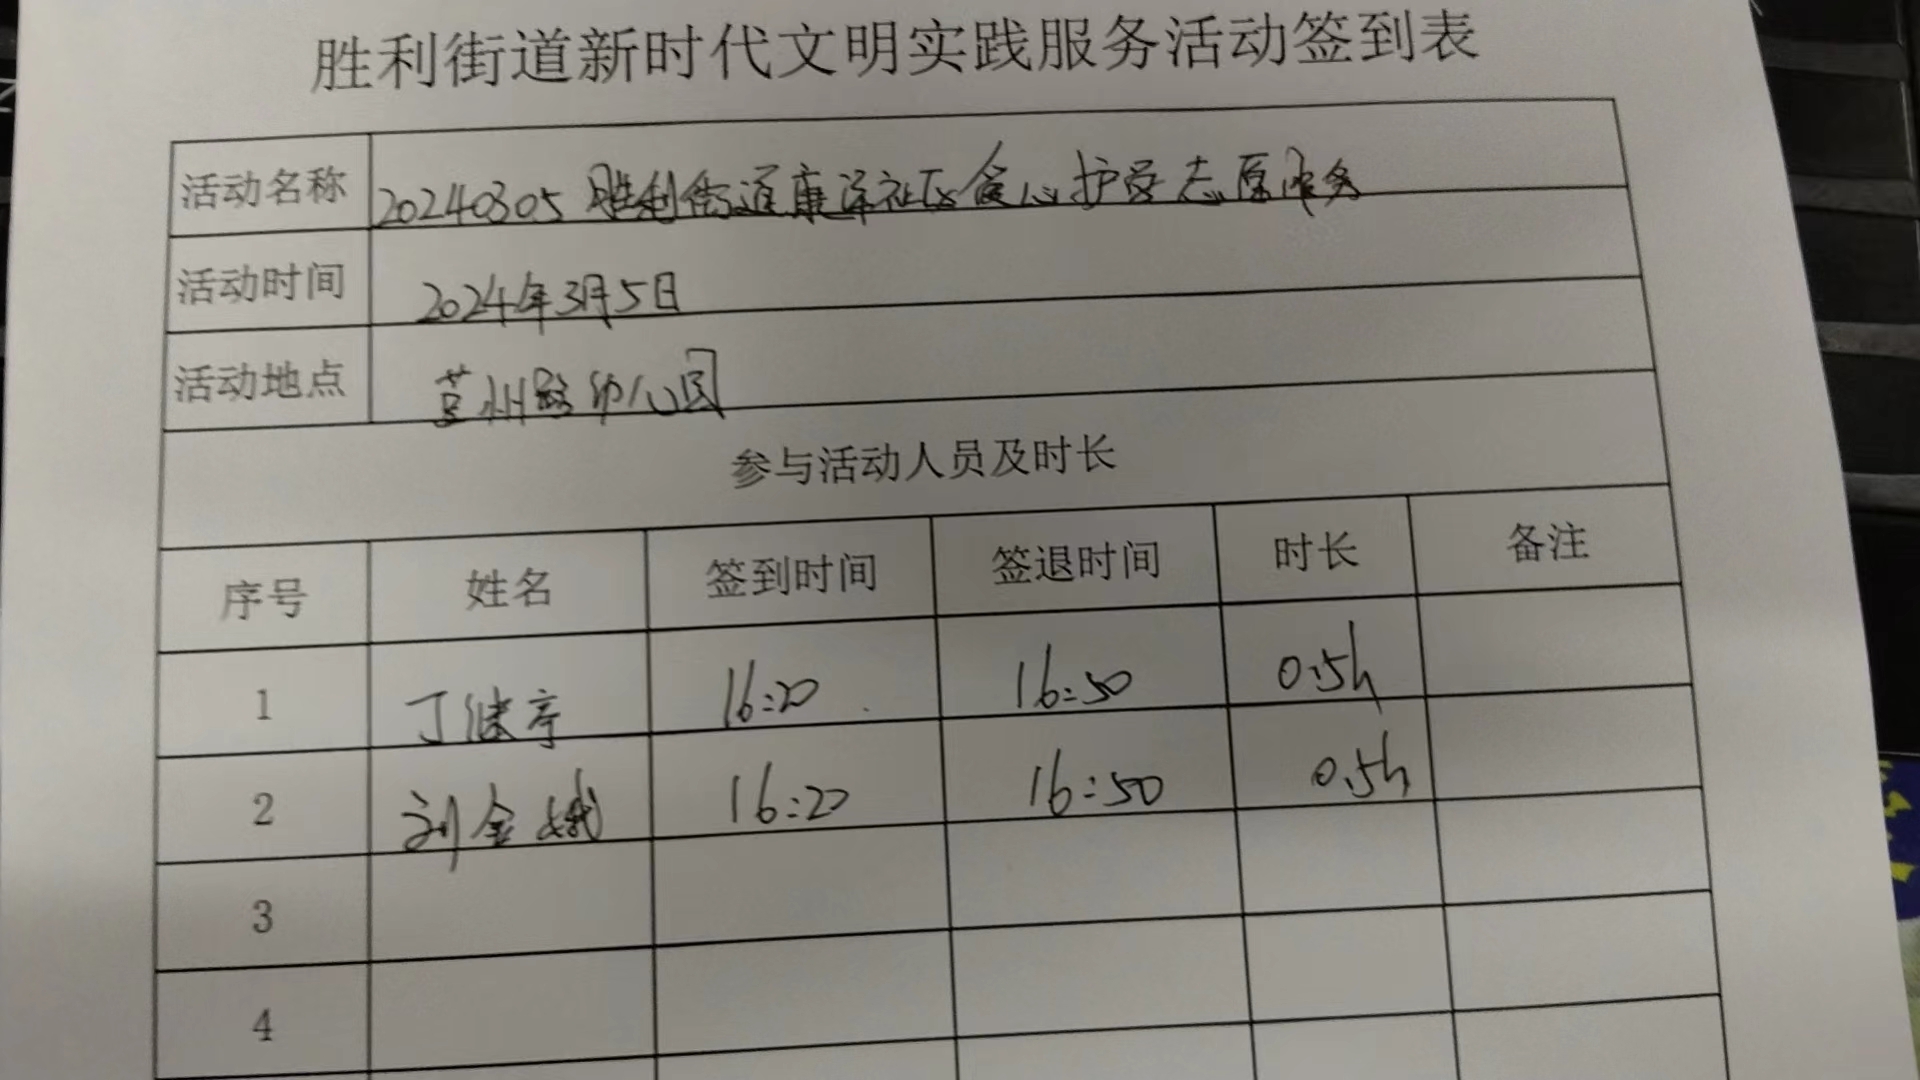 胜利街道新时代文明实践服务活动签到表
活动名称 20240305胜利街道康泽社区食心护学志愿服务
活动时间 2024年3月5日
活动地点 莒州路幼儿园
参与活动人员及时长
序号 姓名 签到时间 签退时间 时长 备注
1 丁继亭 16:20 16:50 0.5h
2 刘金娥 16:20 16:50 0.5h
3
4